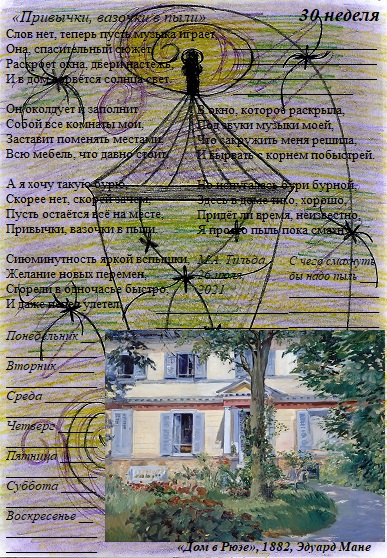 «Привычки, вазочки в пыли»
30 неделя
Слов нет, теперь пусть музыка играет,
Она, спасительный сюжет,
Раскроет окна, двери настежь,
И в дом ворвётся солнца свет.
Он околдует и заполнит
Собой все комнаты мои,
Заставит поменять местами
Всю мебель, что давно стоит.
А я хочу такую бурю,
Скорее нет, скорей зачем,
Пусть остаётся всё на месте,
Привычки, вазочки в пыли.
Сиюминутность яркой вспышки,
Желание новых перемен,
Сгорели в одночасье быстро,
И даже пепел улетел.
В окно, которое раскрыла,
Под звуки музыки моей,
Что закружить меня решила,
И вырвать с корнем побыстрей.
Но испугалась бури бурной,
Здесь в доме тихо, хорошо,
Придёт ли время, неизвестно,
Я просто пыль пока смахну.
М.А. Тильда,
26 июля
2021
С чего смахнуть
бы надо пыль
Понедельник
Вторник
Среда
Четверг
Пятница
Суббота
Воскресенье
«Дом в Рюэе», 1882, Эдуард Мане